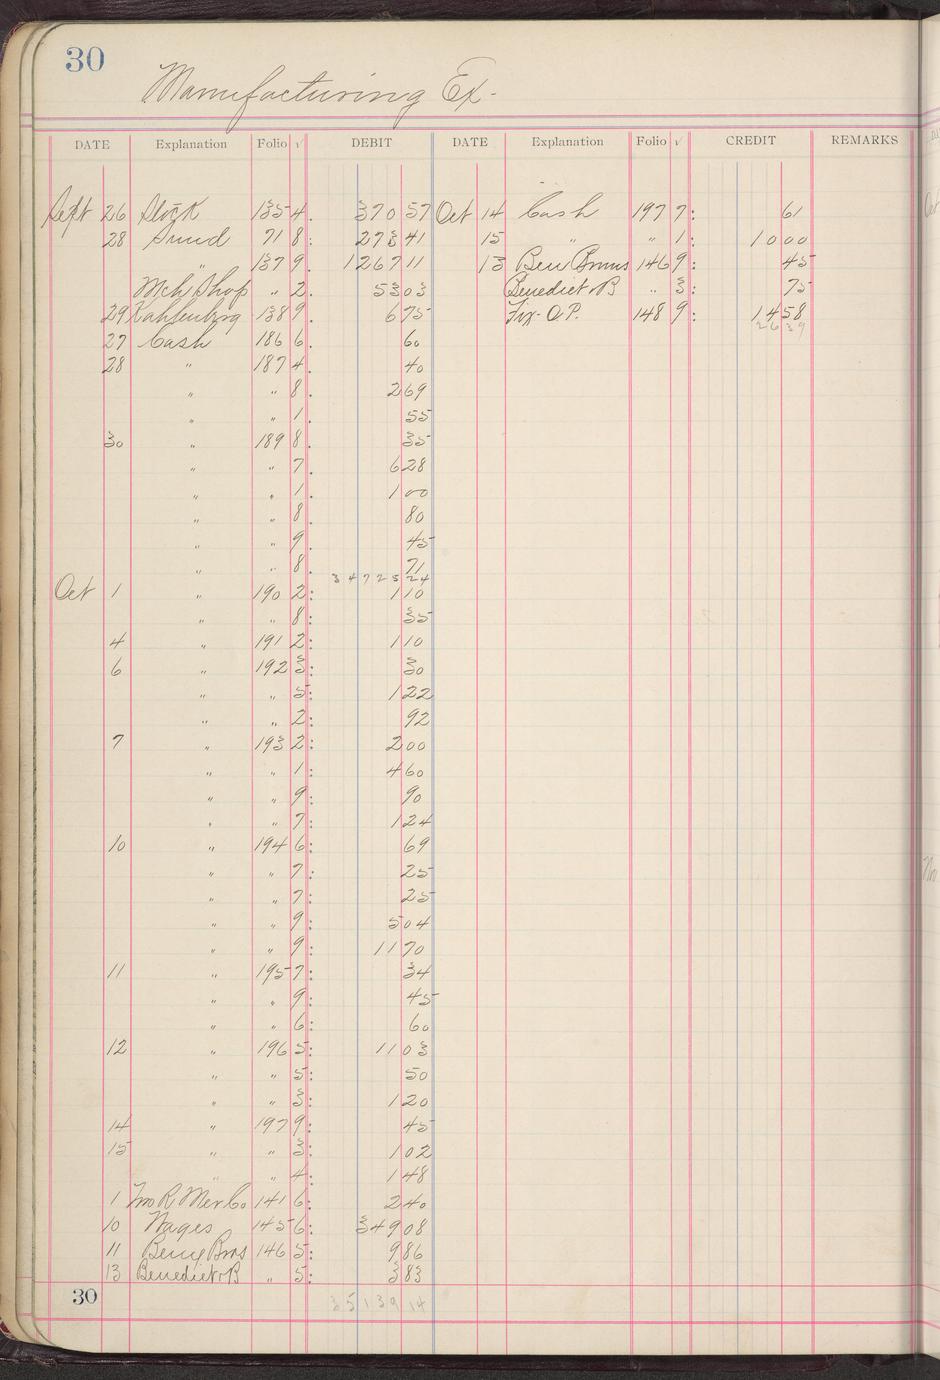 30
Manufacturing Ex-
DATE Explanation Folio √ DEBIT DATE Explanation Folio √ CREDIT REMARKS
Sept 26 Stock 135 4. 370 57 Oct 14 Cash 197 7: 61
28 Sund 71 8: 273 41 15 " " 1: 10 00
" 137 9. 1267 11 13 Ben Bmus 146 9: 45
Mch Shop " 2. 53 03 Benedict & B " 3: 75
29 Kahlenbrg 138 9. 6 75 Fix- O P. 148 9: 14 58
26 39
27 Cash 186 6. 60
28 " 187 4. 40
" " 8. 2 69
" " 1. 55
30 " 189 8. 35
" " 7. 6 28
" " 1. 1 00
" " 8. 80
" " 9. 45
" " 8. 71
34725 24
Oct 1 " 190 2: 1 10
" " 8: 35
4 " 191 2: 1 10
6 " 192 3: 30
" " 5: 1 22
" " 2: 92
7 " 193 2: 2 00
" " 1: 4 60
" " 9: 90
" " 7: 1 24
10 " 194 6: 69
" " 7: 25
" " 7: 25
" " 9: 5 04
" " 9: 11 70
11 " 195 7: 34
" " 9: 45
" " 6: 60
12 " 196 5: 11 03
" " 5: 50
" " 3: 1 20
14 " 197 9: 45
15 " " 3: 1 02
" " 4: 1 48
1 Mer Co 141 6: 2 40
10 Wages 145 6: 349 08
11 Bros 146 5: 9 86
13 Benedict & B " 5: 3 83
30
35139 14